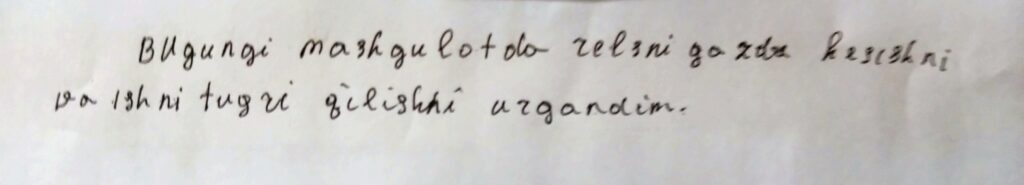 Bugungi mashgulotda relsni gazda kesishni
va ishni tugri qilishni urgandim.